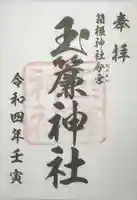 奉拝
箱根神社合季
玉簾神社
令和四年壬寅